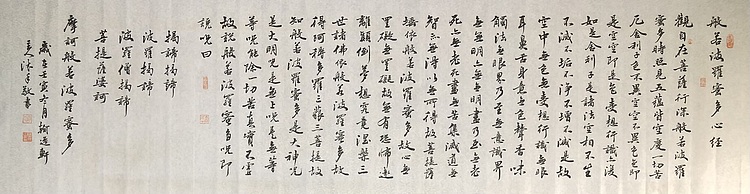 般若波羅蜜多心經
觀自在菩薩行深般若波羅
蜜多時照見五蘊皆空度一切苦
厄舍利子色不異空空不異色色即
是空空即是色受想行識亦復
如是舍利子是諸法空相不生
不滅不垢不淨不增不減是故
空中無色無受想行識無眼
耳鼻舌身意無色聲香味
觸法無眼界乃至無意識界
無無明亦無無明盡乃至無老
死亦無老死盡無苦集滅道無
智亦無得以無所得故菩提薩
埵依般若波羅蜜多故心無
罣礙無罣礙故無有恐怖遠
離顛倒夢想究竟涅槃三
世諸佛依般若波羅蜜多故
得阿耨多羅三藐三菩提故
知般若波羅蜜多是大神呪
是大明呪是無上呪是無等
等呪能除一切苦真實不虛
故說般若波羅蜜多呪即
說呪曰
揭諦揭諦
波羅揭諦
波羅僧揭諦
菩提薩婆訶
摩訶般若波羅蜜多
歲在壬寅月翰逸軒
主人沐手敬書